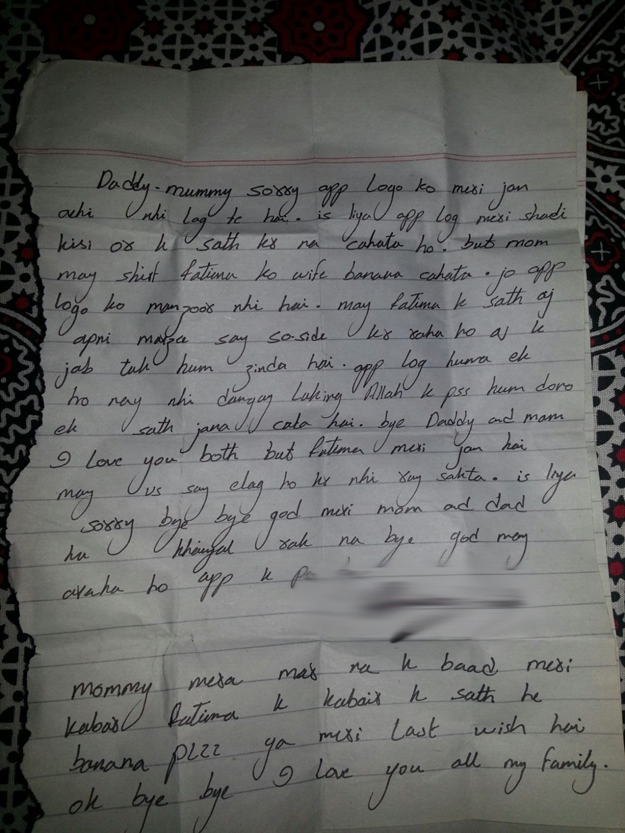 Daddy-mummy sorry app Logo ko meri jan
achi nhi log te hai. is liya app log meri shadi
kisi or k sath kr na cahata ho. but mom
may shirf fatima ko wife banana cahata. jo app
logo ko manzoor nhi hai. may fatima k sath aj
apni marza say so-side kr raha ho aj k
jab tak hum zinda hai. app log huma ek
ho nay nhi dangay laking Allah k pss hum doro
ek sath jana cata hai. bye Daddy ad mam
I love you both but fatima meri jan hai
may us say elag ho kr nhi ray sakta. is liya
sorry bye bye god meri mom ad dad
ka khayal rak na bye god may
araha ho app k
mommy mera mar na k baad meri
kabar fatima k kabair k sath he
banana plzz ya meri last wish hai
ok bye bye I love you all my family.